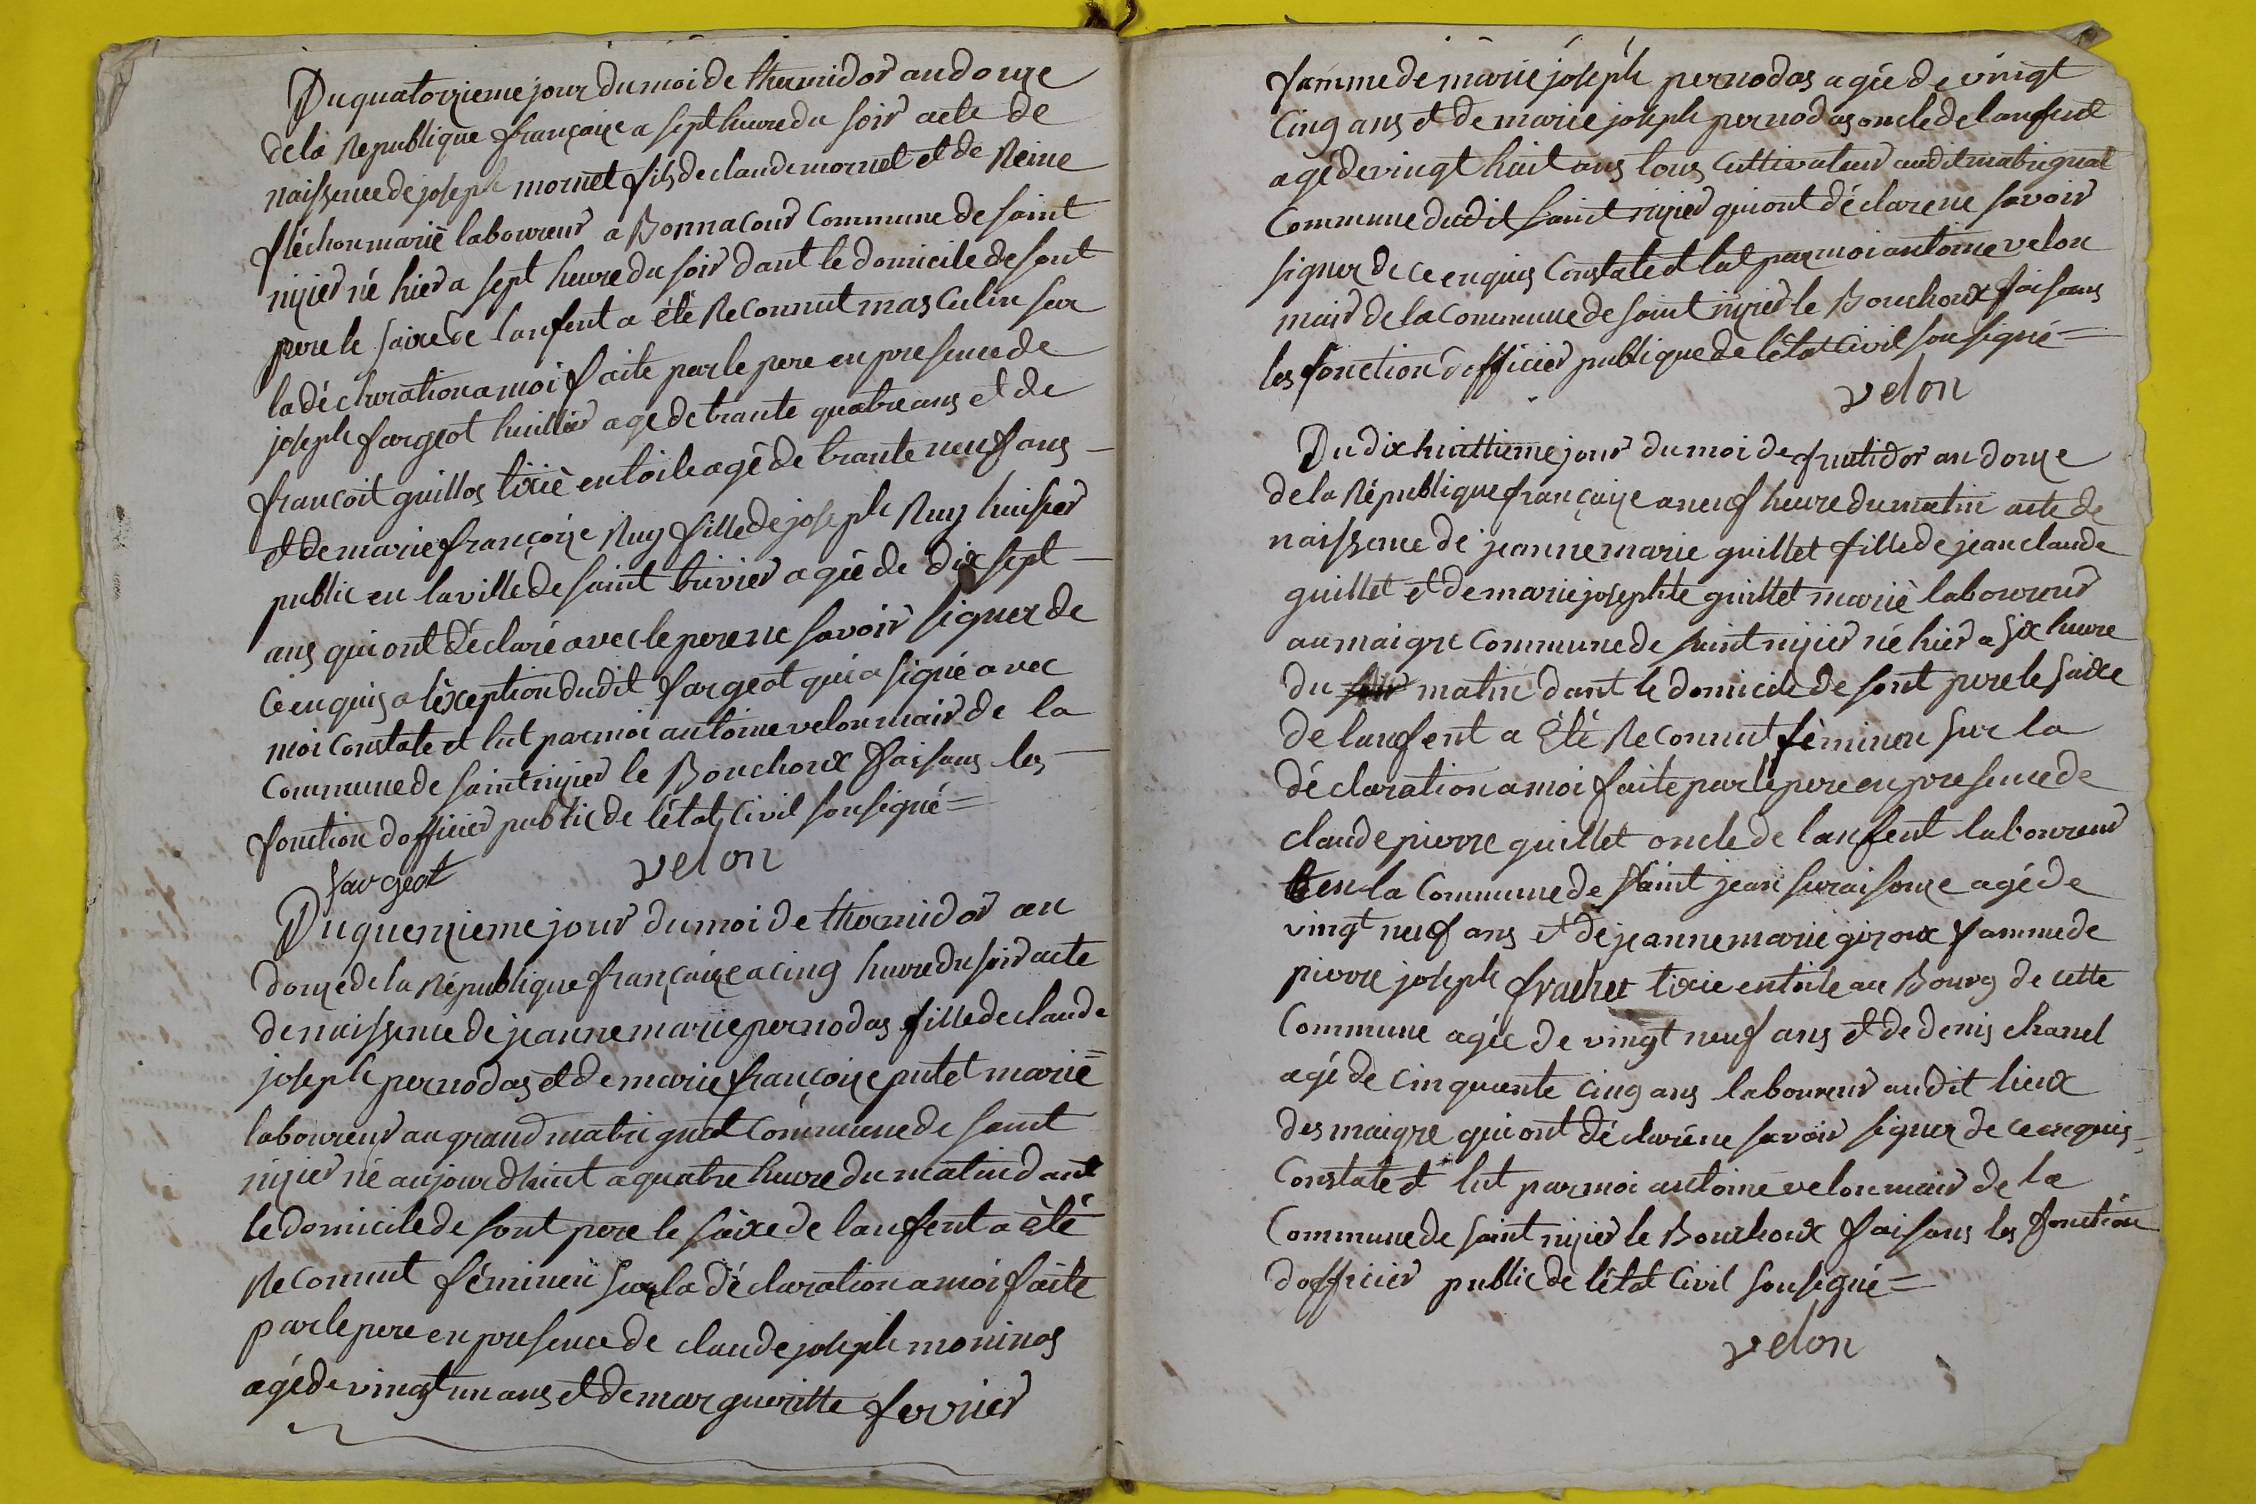 Du quatorzieme jour du moi de thermidor an douze
de la Republique françaize a sept heure du soir acte de
naissence de joseph mornet fils de claude mornet et de Reine
fléchon marié laboureur a Bonnacour Commune de saint
nizier né hier a sept heure du soir dant le domicile de sont
pere le saixe de lanfent a été Reconnut masculin sur
la déclaration a moi faite par le pere en presence de
joseph fargeot huillier agé de trante quatre ans et de
francoit guillos tixié en toile agé de trante neuf ans
et de marie françoize Ruy fille de joseph Ruy huissier
public en la ville de saint trivier agée de dix sept
ans qui ont déclaré avec le pere ne savoir signer de
ce enquis a léxception dudit fargeot qui a signé avec
moi constate et lut par moi antoine velon mair de la
Commune de saint nizier le Bouchoux faisans les
fonction dofficier public de létat Civil sousigné =
fargeot velon
Du quenzieme jour du moi de thermidor an
douze de la République françaize a cinq heure du soir acte
de naissence de jeanne marie pernodas fille de claude
joseph pernodas et de marie françoize putet marié =
laboureur au grand matrignat Commune de saint
nizier né aujourdhuit a quatre heure du matin dant
le domicile de sont pere le saixe de lanfent a été
Reconnut féminein sur la déclaration a moi faite
par le pere en presence de claude joseph moninos
agé de vingt un ans et de margueritte fevrier
famme de marie joseph pernodas agée de vingt
Cinq ans et de marie joseph pernodas oncle de lanfent
agé de vingt huit ans tous cultivateur audit matrignat
Commune dudit saint nizier qui ont déclaré ne savoir
signer de ce enquis Constate et lut par moi antoine velon
mair de la Commune de saint nizier le Bouchoux faisans
les fonction dofficier publique de létat Civil sousigné =
velon
Du dix huittieme jour du moi de frutidor an douze
de la République françaize a neuf heure du matin acte de
naissence de jeanne marie guillet fille de jean claude
guillet et de marie josephte guillet marié laboureur
au maigre Commune de saint nizier né hier a six heure
du soir matin dant le domicile de sont pere le saixe
de lanfent a été Reconnut féminein sur la
déclaration a moi faite par le pere en presence de
claude pierre guillet oncle de lanfent laboureur
en la Commune de saint jean suraisouze agé de
vingt neuf ans et de jeanne marie giroux famme de
pierre joseph frachet tixié en toile au Bourg de cette
Commune agée de vingt neuf ans et de denis chanel
agé de cinquente cinq ans laboureur audit lieux
des maigre qui ont déclaré ne savoir signer de ce enquis
Constate et lut par moi antoine velon mair de la
Commune de saint nizier le Bouchoux faisans les fonction
dofficier public de létat Civil sousigné =
velon